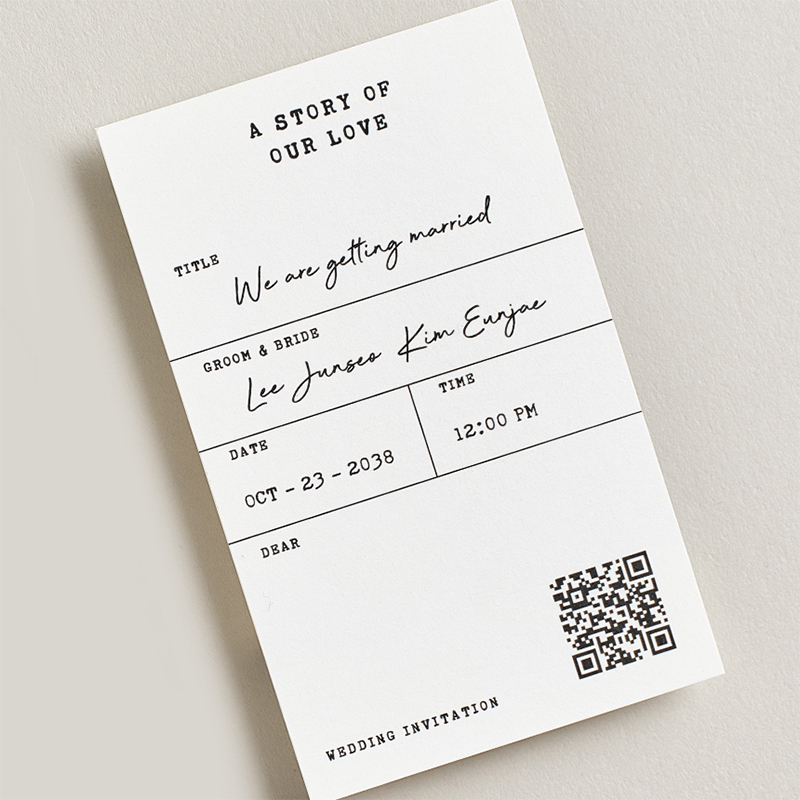 A STORY OF
OUR LOVE
TITLE
We are getting married
GROOM & BRIDE
Lee Junseo Kim Eunjae
DATE
OCT - 23 - 2038
TIME
12:00 PM
DEAR
WEDDING INVITATION